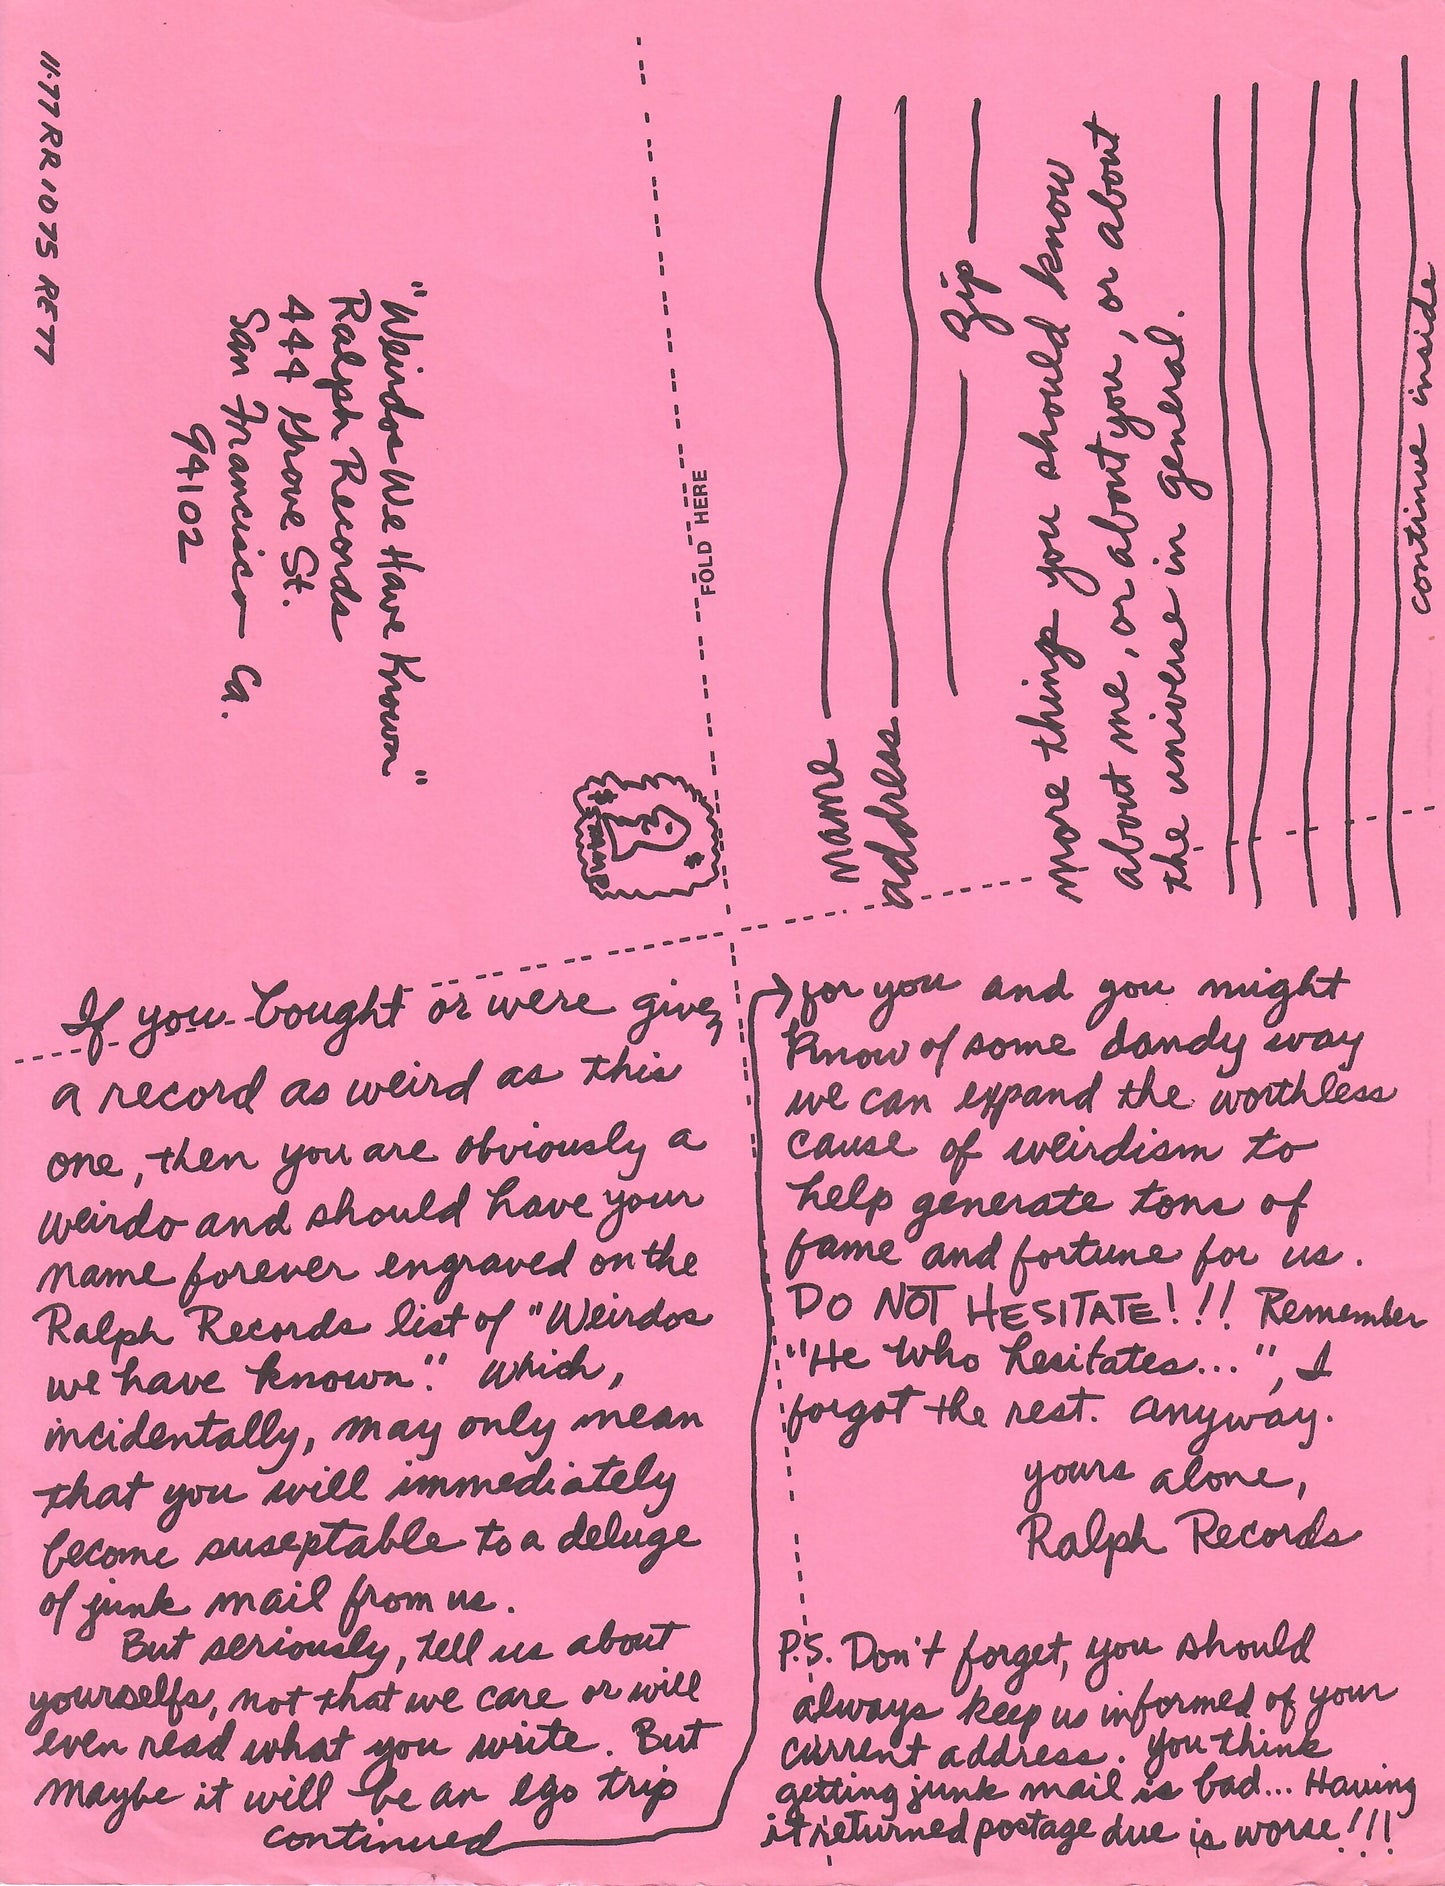 11-77 RR 1075 RE 77
"Weirdos We Have Known"
Ralph Records
444 Grove St.
San Francisco Ca.
94102
FOLD HERE
stamp
name
address
zip
more things you should know
about me, or about you, or about
the universe in general.
continue inside
If you bought or were given
a record as weird as this
one, then you are obviously a
weirdo and should have your
name forever engraved on the
Ralph Records list of "Weirdos
we have known". Which,
incidentally, may only mean
that you will immediately
become suseptable to a deluge
of junk mail from us.
But seriously, tell us about
yourselfs, not that we care or will
even read what you write. But
maybe it will be an ego trip
continued
for you and you might
know of some dandy way
we can expand the worthless
cause of weirdism to
help generate tons of
fame and fortune for us.
DO NOT HESITATE!!! Remember
"He who hesitates...", I
forgot the rest. Anyway.
yours alone,
Ralph Records
P.S. Don't forget, you should
always keep us informed of your
current address. You think
getting junk mail is bad... Having
it returned postage due is worse!!!